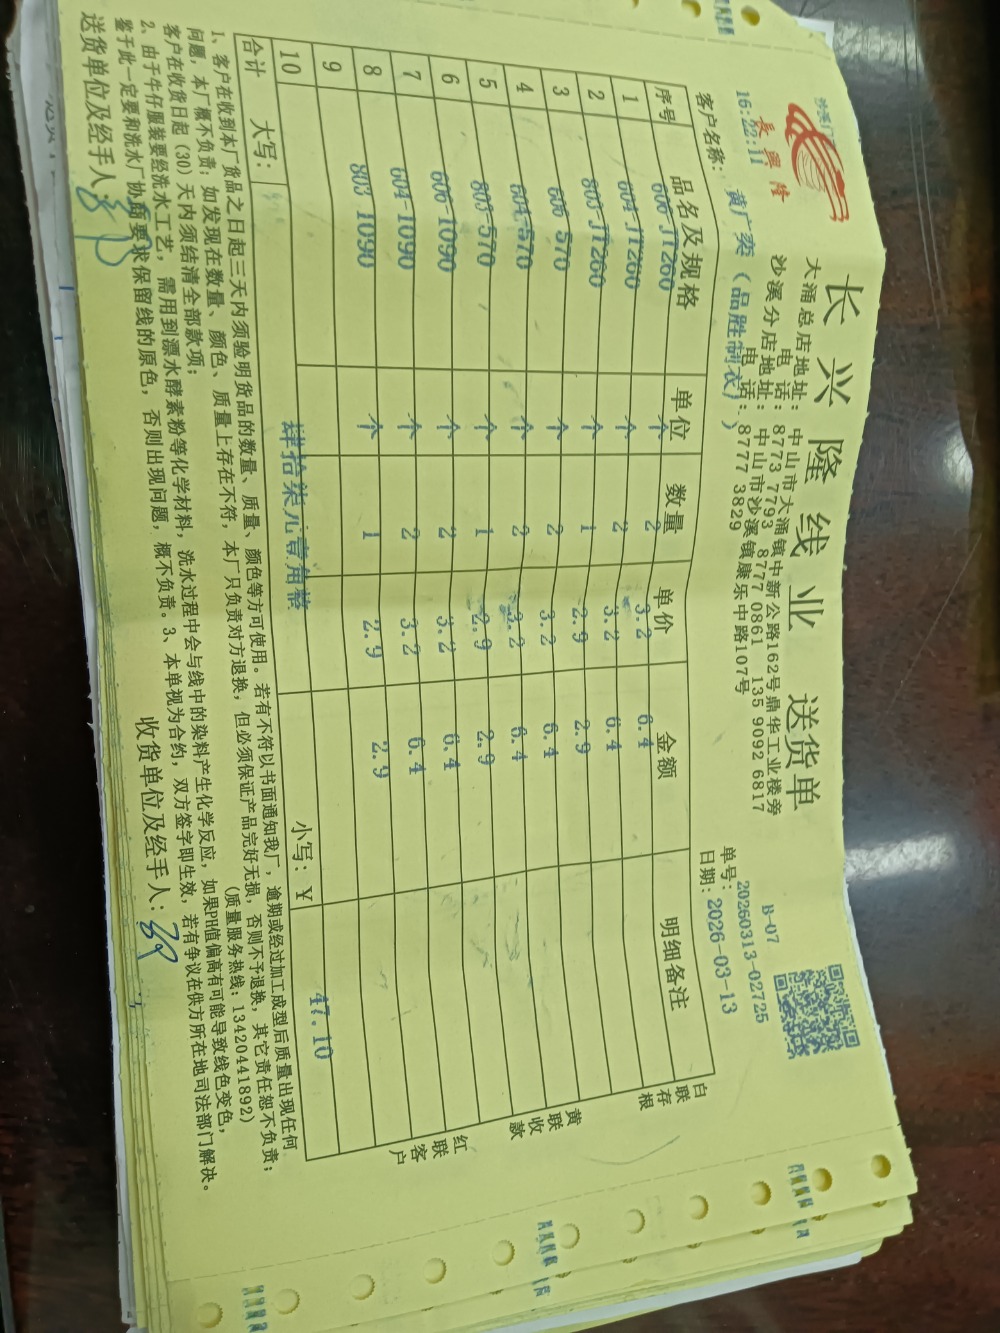 長興隆
长兴隆线业 送货单
大涌总店地址: 中山市大涌镇中新公路162号鼎华工业楼旁
电话: 8773 7793 8777 0861 135 9092 6817
沙溪分店地址: 中山市沙溪镇康乐中路107号
电话: 8777 3829
B-07
单号: 20260313-02725
16:22:11
客户名称: 黄广奕(品胜制衣)
日期: 2026-03-13
序号 品名及规格 单位 数量 单价 金额 明细备注
1 606-JT260 个 2 3.2 6.4
2 604-JT260 个 2 3.2 6.4
3 803-JT260 个 1 2.9 2.9
4 606-570 个 2 3.2 6.4
5 604-570 个 2 3.2 6.4
6 803-570 个 1 2.9 2.9
7 606-1090 个 2 3.2 6.4
8 604-1090 个 2 3.2 6.4
9 803-1090 个 1 2.9 2.9
10
合计 大写: 肆拾柒元壹角整 小写: ¥ 47.10
白联存根
黄联收款
红联客户
1、客户在收到本厂货品之日起三天内须验明货品的数量、质量、颜色等方可使用。若有不符以书面通知我厂，逾期或经过加工成型后质量出现任何
问题，本厂概不负责；如发现在数量、颜色、质量上存在不符，本厂只负责对方退换，但必须保证产品完好无损，否则不予退换，其它责任恕不负责；
客户在收货日起（30）天内须结清全部款项； （质量服务热线：13420441892）
2、由于牛仔服装要经洗水工艺，需用到漂水酵素粉等化学材料，洗水过程中会与线中的染料产生化学反应，如果PH值偏高有可能导致线色变色，
鉴于此一定要和洗水厂协商要求保留线的原色，否则出现问题，概不负责。3、本单视为合约，双方签字即生效，若有争议在供方所在地司法部门解决。
送货单位及经手人: 收货单位及经手人: